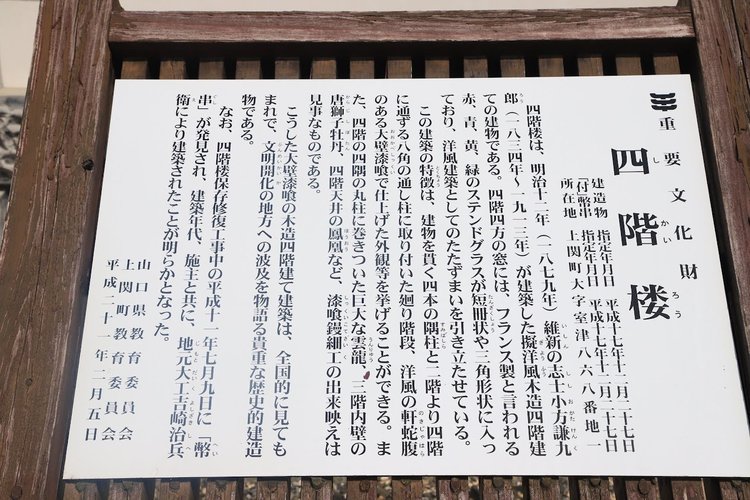 重要文化財
四階楼
しかいろう
建造物 指定年月日 平成十七年十二月二十七日
「付」幣串 指定年月日 平成十七年十二月二十七日
所在地 上関町大字室津八六八番地一
四階楼は、明治十二年（一八七九年）維新の志士小方謙九
郎（一八三四年～一九一三年）が建築した擬洋風木造四階建
ての建物である。四階四方の窓には、フランス製と言われる
赤、青、黄、緑のステンドグラスが短冊状や三角形状に入っ
ており、洋風建築としてのたたずまいを引き立たせている。
この建築の特徴は、建物を貫く四本の隅柱と二階より四階
に通ずる八角の通し柱に取り付いた廻り階段、洋風の軒蛇腹
のある大壁漆喰で仕上げた外観等を挙げることができる。ま
た、四階の四隅の丸柱に巻きついた巨大な雲龍。三階内壁の
唐獅子牡丹、四階天井の鳳凰など、漆喰鏝細工の出来映えは
見事なものである。
こうした大壁漆喰の木造四階建て建築は、全国的に見ても
まれで、文明開化の地方への波及を物語る貴重な歴史的建造
物である。
なお、四階楼保存修復工事中の平成十一年七月九日に「幣
串」が発見され、建築年代、施主と共に、地元大工吉崎治兵
衛により建築されたことが明らかとなった。
山口県教育委員会
上関町教育委員会
平成二十一年二月五日